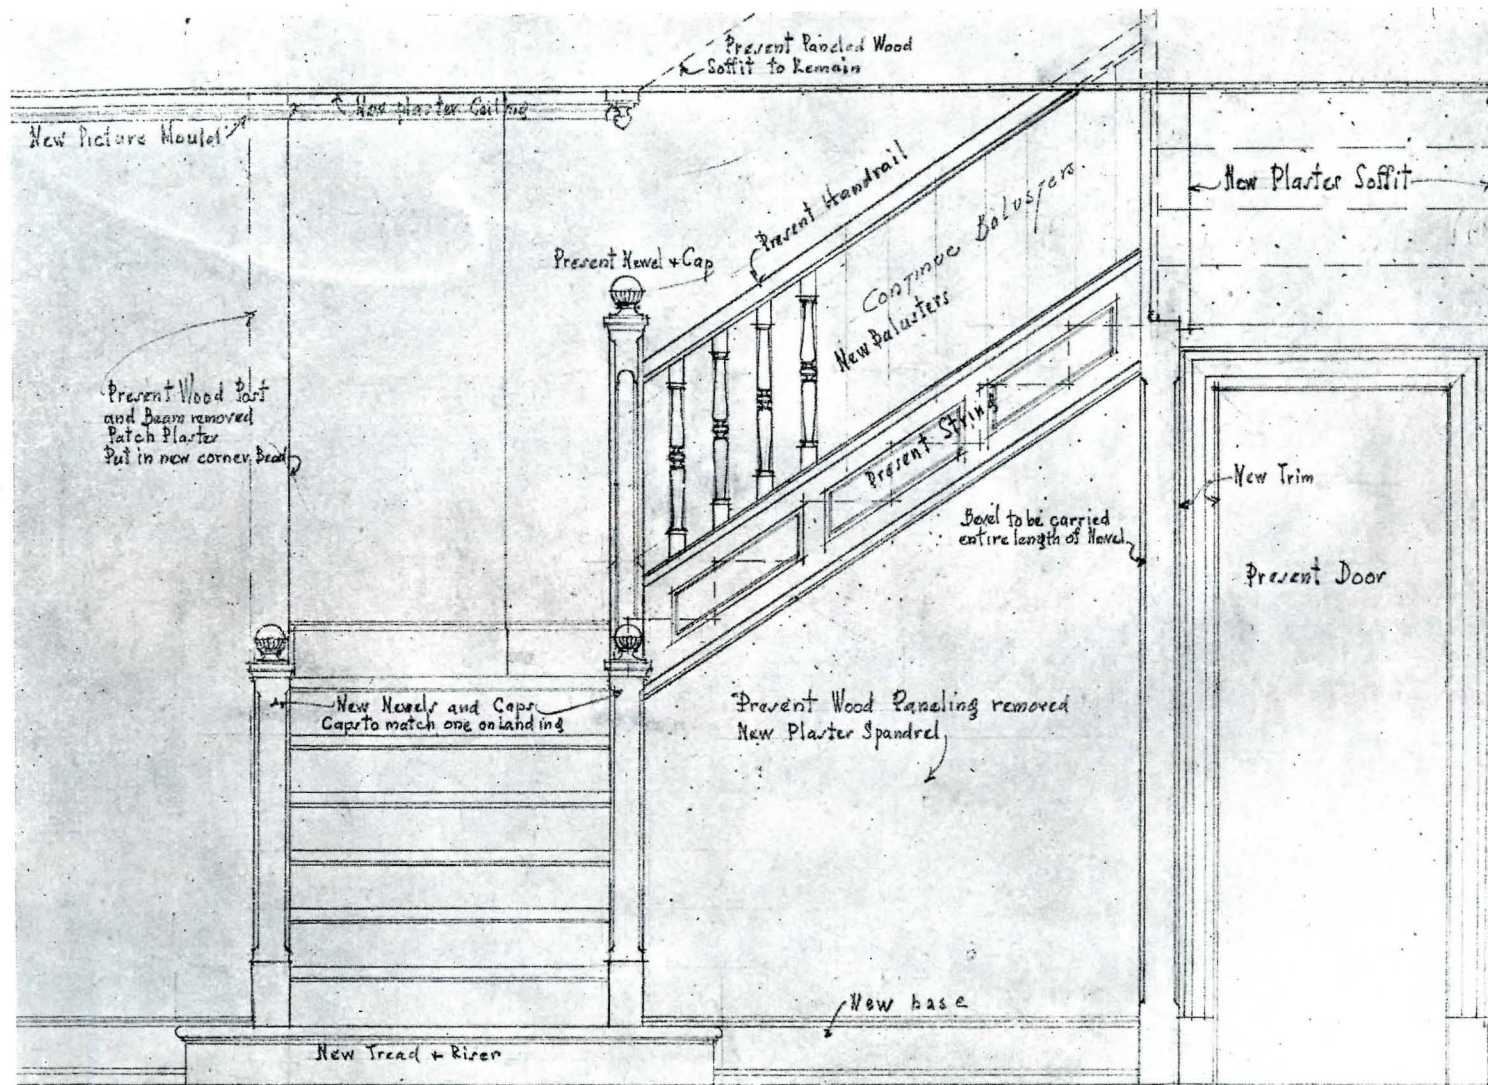 Present Paneled Wood
Soffit to Remain
New Plaster Ceiling
New Picture Mould
Present Handrail
Continue Balusters.
New Balusters
New Plaster Soffit
Present Newel + Cap
Present Wood Post
and Beam removed
Patch Plaster
Put in new corner Bead
Present String
New Trim
Bevel to be carried
entire length of Newel
Present Door
New Newels and Caps
Caps to match one on landing
Present Wood Paneling removed
New Plaster Spandrel
New base
New Tread + Riser